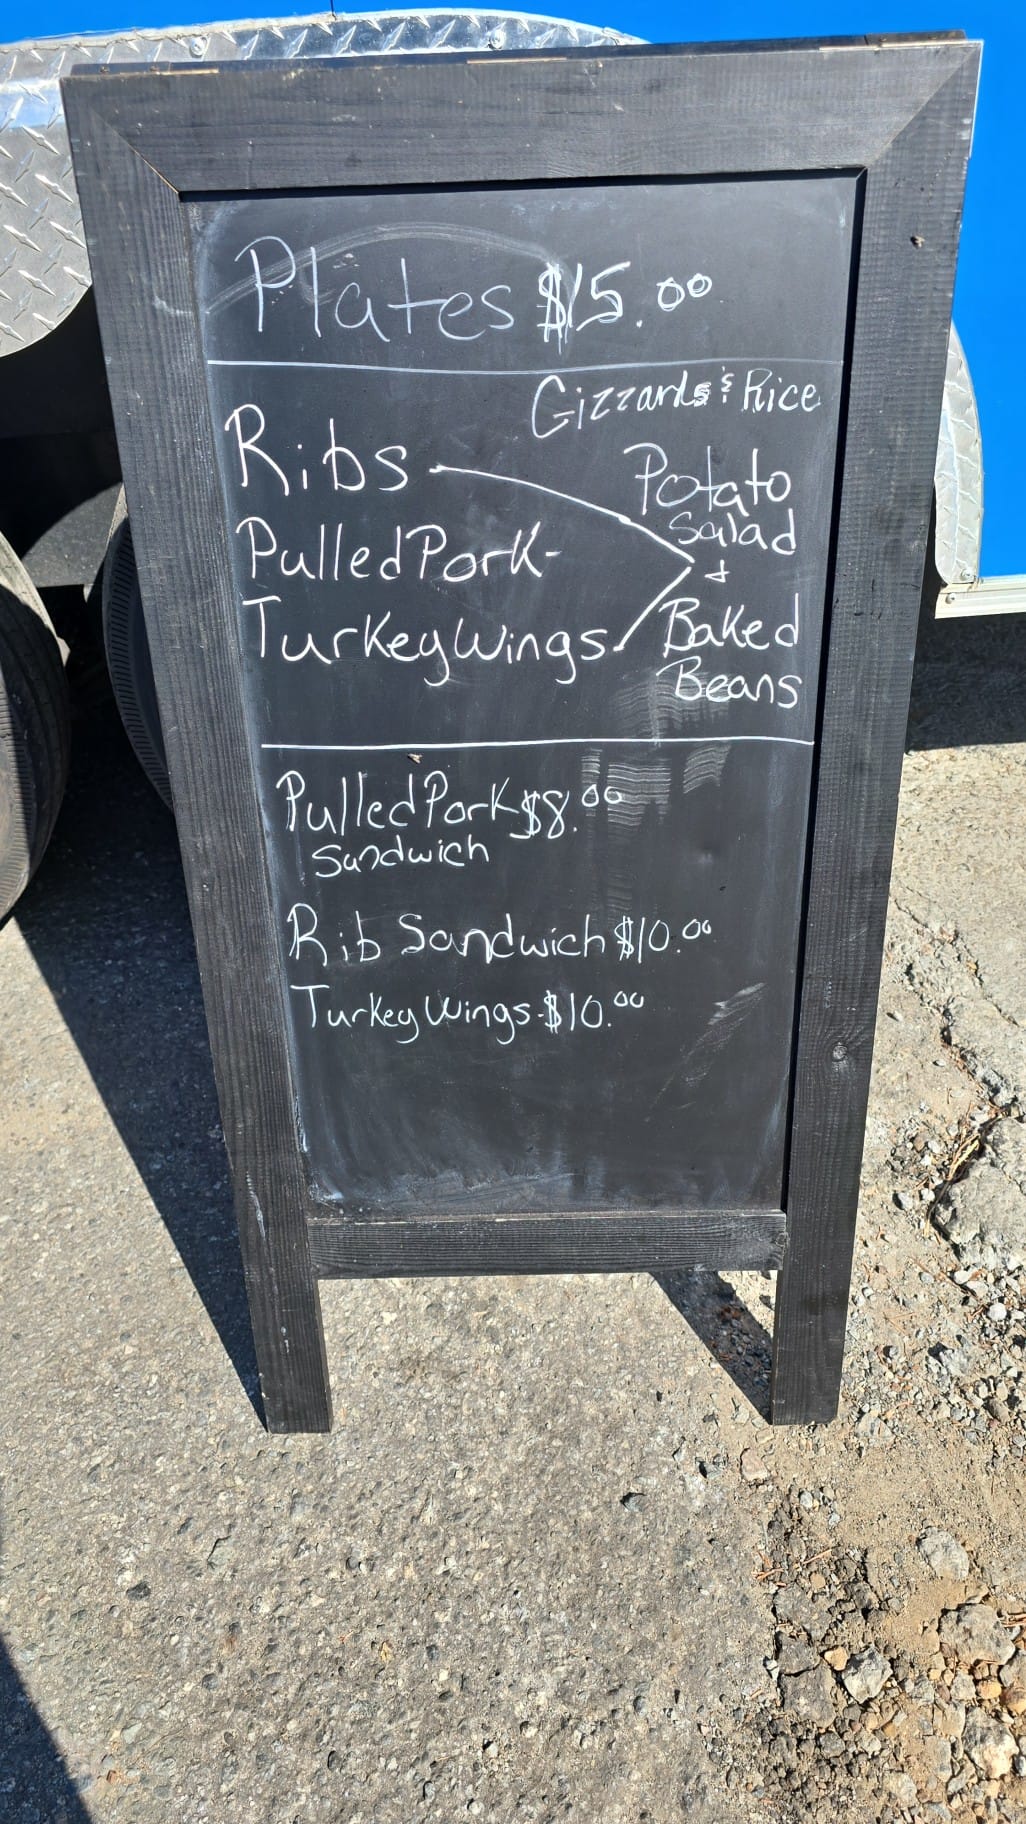 Plates $15.00
Gizzards & Rice
Ribs
Pulled Pork-
Turkey Wings
Potato
Salad
&
Baked
Beans
Pulled Pork $8.00
Sandwich
Rib Sandwich $10.00
Turkey Wings-$10.00